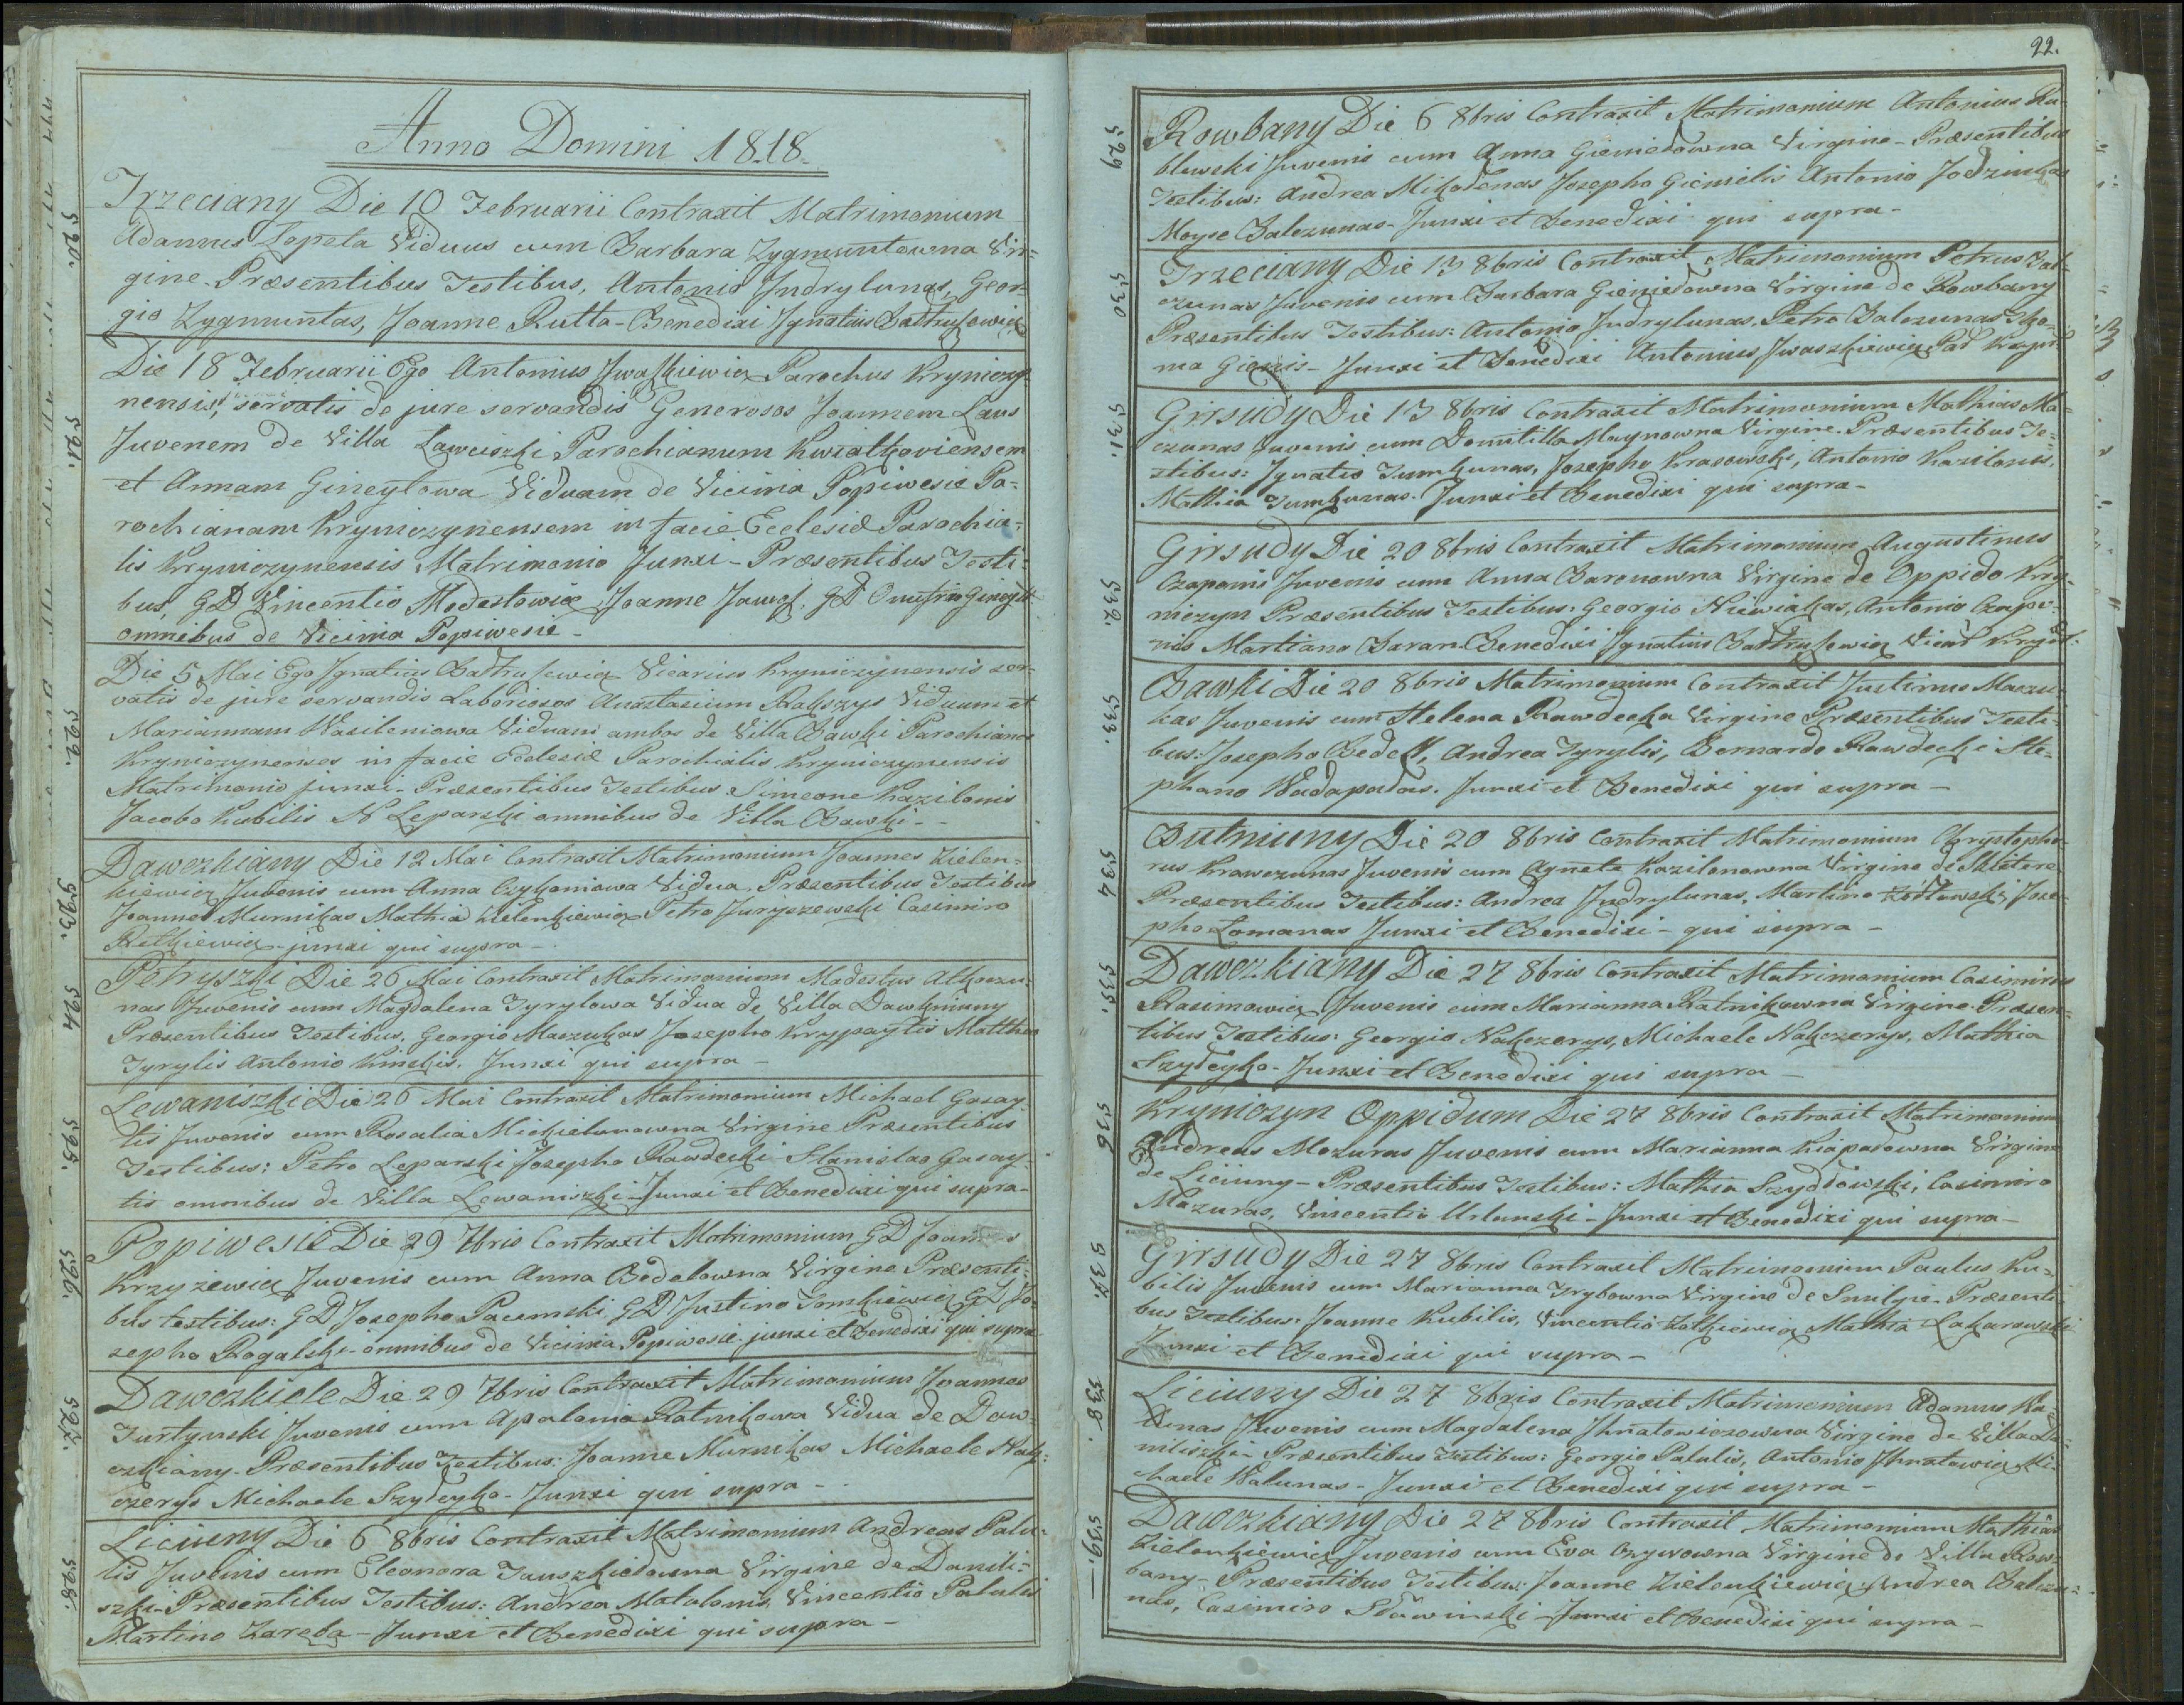 Anno Domini 1818.
520.
Trzeciany Die 10 Februarii Contraxit Matrimonium
Adamus Lopeta Viduus cum Barbara Zygmuntowna Vir=
gine. Præsentibus Testibus, Antonio Jndrylunas, Geor-
gio Zygmuntas, Joanne Rutta - Benedixi Jgnatius Battrusewicz
521.
Die 18 Februarii Ego Antonius Jwaszkiewicz Parochus Kryniczy-
nensis, servatis de jure servandis Generosos Joannem Laus
Juvenem de Villa Lawciszki Parochianum Kwiatkoviensem
et Annam Gineytowa Viduam de Vicinia Popiwesie Pa=
rochianam Kryniczynensem in facie Ecclesiæ Parochia=
lis Kryniczynensis Matrimonio Junxi - Præsentibus Testi=
bus, GD Vincentio Modestowicz, Joanne , GD Onufrio Gineytt
omnibus de Vicinia Popiwesie -
522.
Die 5 Mai Ego Jgnatius Battrusewicz Vicarius Kryniczynensis ser-
vatis de jure servandis Laboriosos Anastasium Rakszys Viduum et
Mariannam Wasileniowa Viduam ambos de Villa Bawki Parochianos
Kryniczynenses in facie Ecclesiæ Parochialis Kryniczynensis
Matrimonio junxi - Præsentibus Testibus Simeone Kazilonis
Jacobo Kubilis N Leparski omnibus de Villa Bawki -
523.
Dawczkiany Die 12 Mai Contraxit Matrimonium Joannes Zielen=
kiewicz Juvenis cum Anna Czykoniowa Vidua. Præsentibus Testibus
Joanne Murnikas Mathia Zielenkiewicz Petro Juryszewski Casimiro
Retkiewicz - junxi qui supra -
524
Petryszki Die 26 Mai Contraxit Matrimonium Modestus Alkoczu-
nas Juvenis cum Magdalena Tyrylowa Vidua de Villa Dawkniuny
Præsentibus Testibus, Georgio Maszukas Josepho Krypaytis Mattheo
Tyrylis Antonio Kinskis. Junxi qui supra -
525.
Lewaniszki Die 26 Mai Contraxit Matrimonium Michael Gasay
tis Juvenis cum Rosalia Mickielunowna Virgine Præsentibus
Testibus: Petro Leparski Josepho Rawdecki Stanislao Gasay-
tis omnibus de Villa Lewaniszki - Junxi et Benedixi qui supra -
526.
Popiwesie Die 29 7bris Contraxit Matrimonium GD Joannes
Krzyżewicz Juvenis cum Anna Bedelowna Virgine Præsenti-
bus testibus: GD Josepho Pacunski, GD Justino Tomkiewicz GD Jo-
sepho Rogalski - omnibus de Vicinia Popiwesie junxi et Benedixi qui supra
527.
Dawczkiele Die 29 7bris Contraxit Matrimonium Joannes
Turtynski Juvenis cum Apolonia Ratnikowa Vidua de Daw=
czkiany - Præsentibus Testibus: Joanne Murnikas Michaele Nak-
czerys Michaele Szydeyko - Junxi qui supra -
528
Liciuny Die 6 8bris Contraxit Matrimonium Andreas Palu-
lis Juvenis cum Eleonora Januszkielowna Virgine de Danili-
szki - Præsentibus Testibus: Andrea Matulonis, Vincentio Palulis
Martino Zareba - Junxi et Benedixi qui supra -
22.
529
Rowbany Die 6 8bris Contraxit Matrimonium Antonius Ru-
blewski Juvenis cum Anna Gieniedowna Virgine - Præsentibus
Testibus: Andrea Mikodenas Josepho Gienielis Antonio Jodziukas
Moyse Balczunas - Junxi et Benedixi qui supra -
530
Trzeciany Die 13 8bris Contraxit Matrimonium Petrus Bal-
czunas Juvenis cum Barbara Gieniedowna Virgine de Rowbany
Præsentibus Testibus: Antonio Jndrylunas, Petro Balczunas Tho-
ma Gienis - Junxi et Benedixi Antonius Jwaszkiewicz Par Kryn
531.
Girsudy Die 13 8bris Contraxit Matrimonium Mathias Ma=
czunas Juvenis cum Domitilla Mlynowna Virgine. Præsentibus Te=
stibus: Jgnatio Tumkunas, Josepho Krasowski, Antonio Kazilonis,
Mathia Tumkunas. Junxi et Benedixi qui supra -
532.
Girsudy Die 20 8bris Contraxit Matrimonium Augustinus
Czaponis Juvenis cum Anna Baronowna Virgine de Oppido Kry-
niczyn Præsentibus Testibus: Georgio Niewiakas, Antonio Czapo-
nis Martiano Baran. Benedixi Jgnatius Battrusewicz Vicar Kryn:
533.
Bawki Die 20 8bris Matrimonium Contraxit Justinus Maszu-
kas Juvenis cum Helena Rawdecka Virgine Præsentibus Testi-
bus: Josepho Bedell, Andrea Tyrylis, Bernardo Rawdecki Ste-
phano Wadapadas. Junxi et Benedixi qui supra -
534
Butniuny Die 20 8bris Contraxit Matrimonium Chrystopho-
rus Krawczunas Juvenis cum Agneta Kazilonowna Virgine de Mitere
Præsentibus Testibus: Andrea Jndrylunas, Martino Kozłowski, Jose-
pho Lomanas Junxi et Benedixi - qui supra -
535.
Dawczkiany Die 27 8bris Contraxit Matrimonium Casimirus
Rasimowicz Juvenis cum Marianna Ratnikowna Virgine. Præsen=
tibus Testibus: Georgio Nakczerys, Michaele Nakczerys, Mathia
Szydeyko - Junxi et Benedixi qui supra -
536
Kryniczyn Oppidum Die 27 8bris Contraxit Matrimonium
Andreas Mazuras Juvenis cum Marianna Kiapadowna Virgine
de Liciuny - Præsentibus Testibus: Mathia Szydłowski, Casimiro
Mazuras, Vincentio Urlanski - Junxi et Benedixi qui supra -
537.
Girsudy Die 27 8bris Contraxit Matrimonium Paulus Ku-
bilis Juvenis cum Marianna Trybowna Virgine de Smilgie. Præsenti-
bus Testibus: Joanne Kubilis, Vincentio Zotkiewicz Mathia Lakarowski
Junxi et Benedixi qui supra -
538.
Liciuny Die 27 8bris Contraxit Matrimonium Adamus Ka-
unas Juvenis cum Magdalena Jhnatowiczowna Virgine de Villa Da-
niliszki - Præsentibus Testibus: Georgio Palulis, Antonio Jhnatowicz Mi-
chaele Walunas - Junxi et Benedixi qui supra -
539.
Dawczkiany Die 27 8bris Contraxit Matrimonium Mathias
Zielenkiewicz Juvenis cum Eva Czywowna Virgine de Villa Row-
bany - Præsentibus Testibus: Joanne Zielenkiewicz, Andrea Balczu-
nas, Casimiro Sławinski - Junxi et Benedixi qui supra -